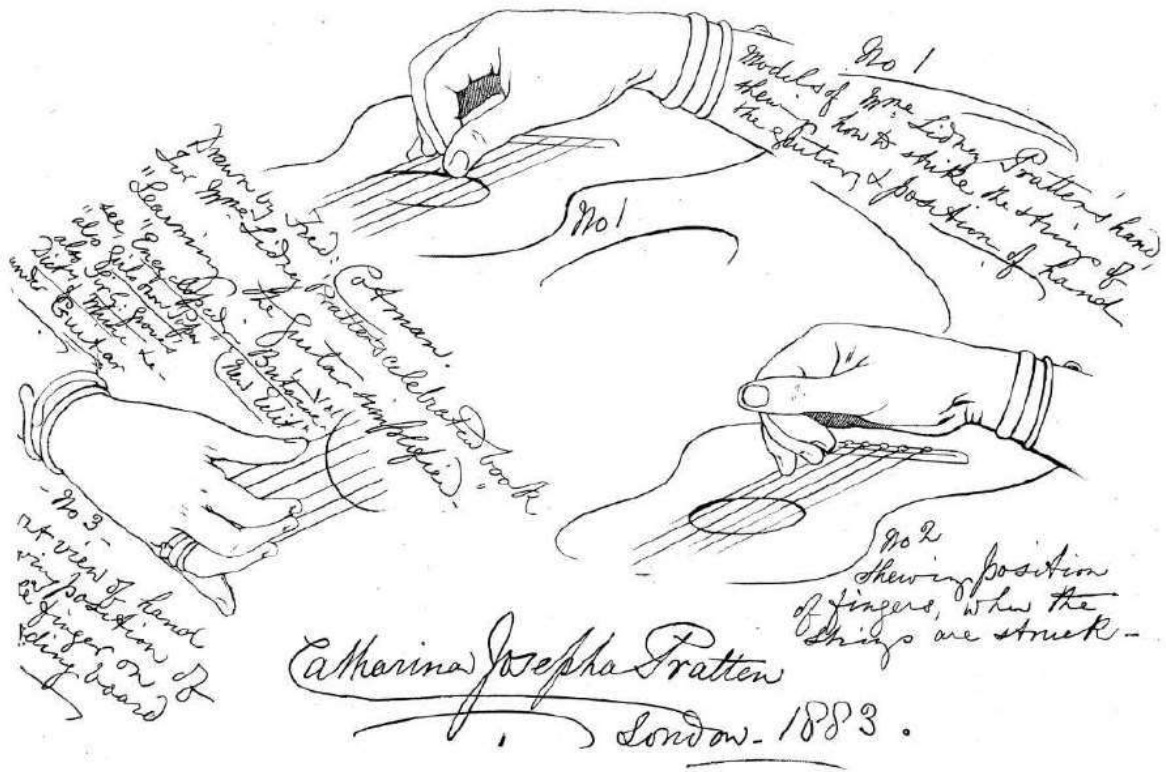 No 1
Models of Mme Sidney Pratten's hand
shewing how to strike the strings of
the guitar, & position of hand
No 1
Drawn by Fred. Cotman.
For Mme Sidney Pratten's celebrated book
"Learning the Guitar simplified."
see "Encyclopaed. Britannica
New Edit
also Girls own Paper"
also Sir G. Groves
Dicty of Music &c-
under Guitar
No 2
Shewing position
of fingers, when the
strings are struck-
- No 3 -
view of hand
position of
finger on
board
Catharina Josepha Pratten
London - 1883.